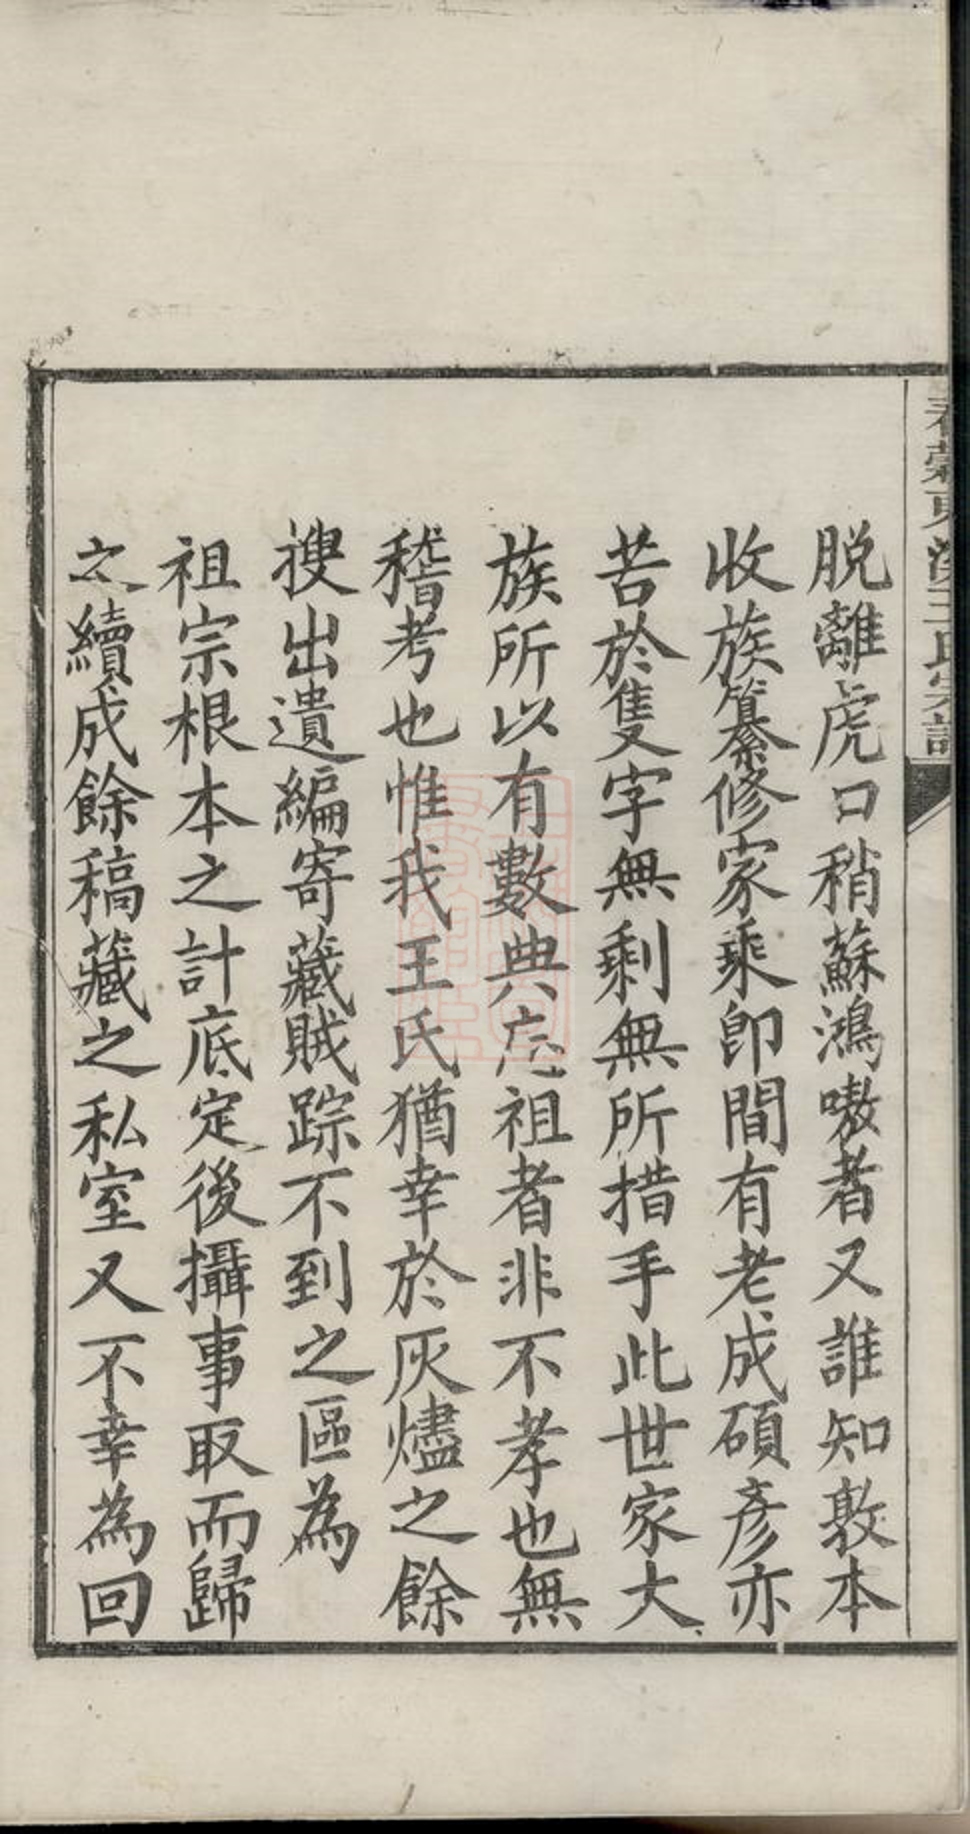 脱離虎口稍蘇鴻嗷者又誰知敦本
收族纂修家乘即間有老成碩彥亦
苦於隻字無剩無所措手此世家大
族所以有數典忘祖者非不孝也無
稽考也惟我王氏猶幸於灰燼之餘
搜出遺編寄藏賊踪不到之區為
祖宗根本之計底定後攝事取而歸
之續成餘稿藏之私室又不幸為回